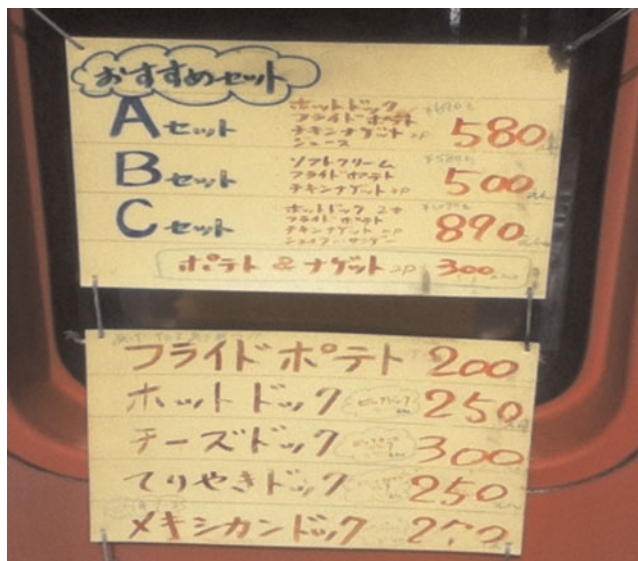 おすすめセット
Aセット
ホットドック
フライドポテト
チキンナゲット2P
ジュース
580
Bセット
ソフトクリーム
フライドポテト
チキンナゲット2P
500
Cセット
ホットドック
フライドポテト
チキンナゲット
890
ポテト & ナゲット2P 300
フライドポテト 200
ホットドック 250
チーズドック 300
てりやきドック 250
メキシカンドック